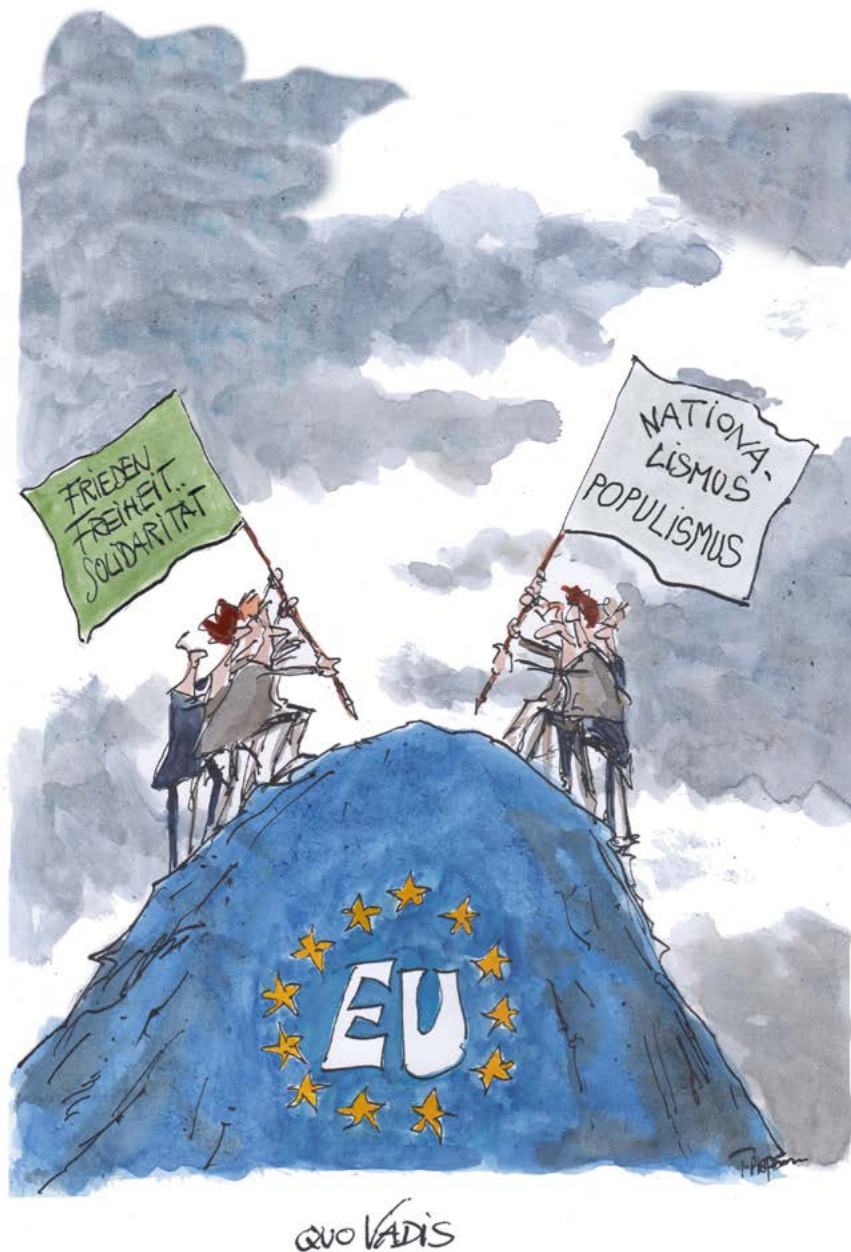 FRIEDEN
FREIHEIT..
SOLIDARITÄT
NATIONA-
LISMUS
POPULISMUS
EU
QUO VADIS